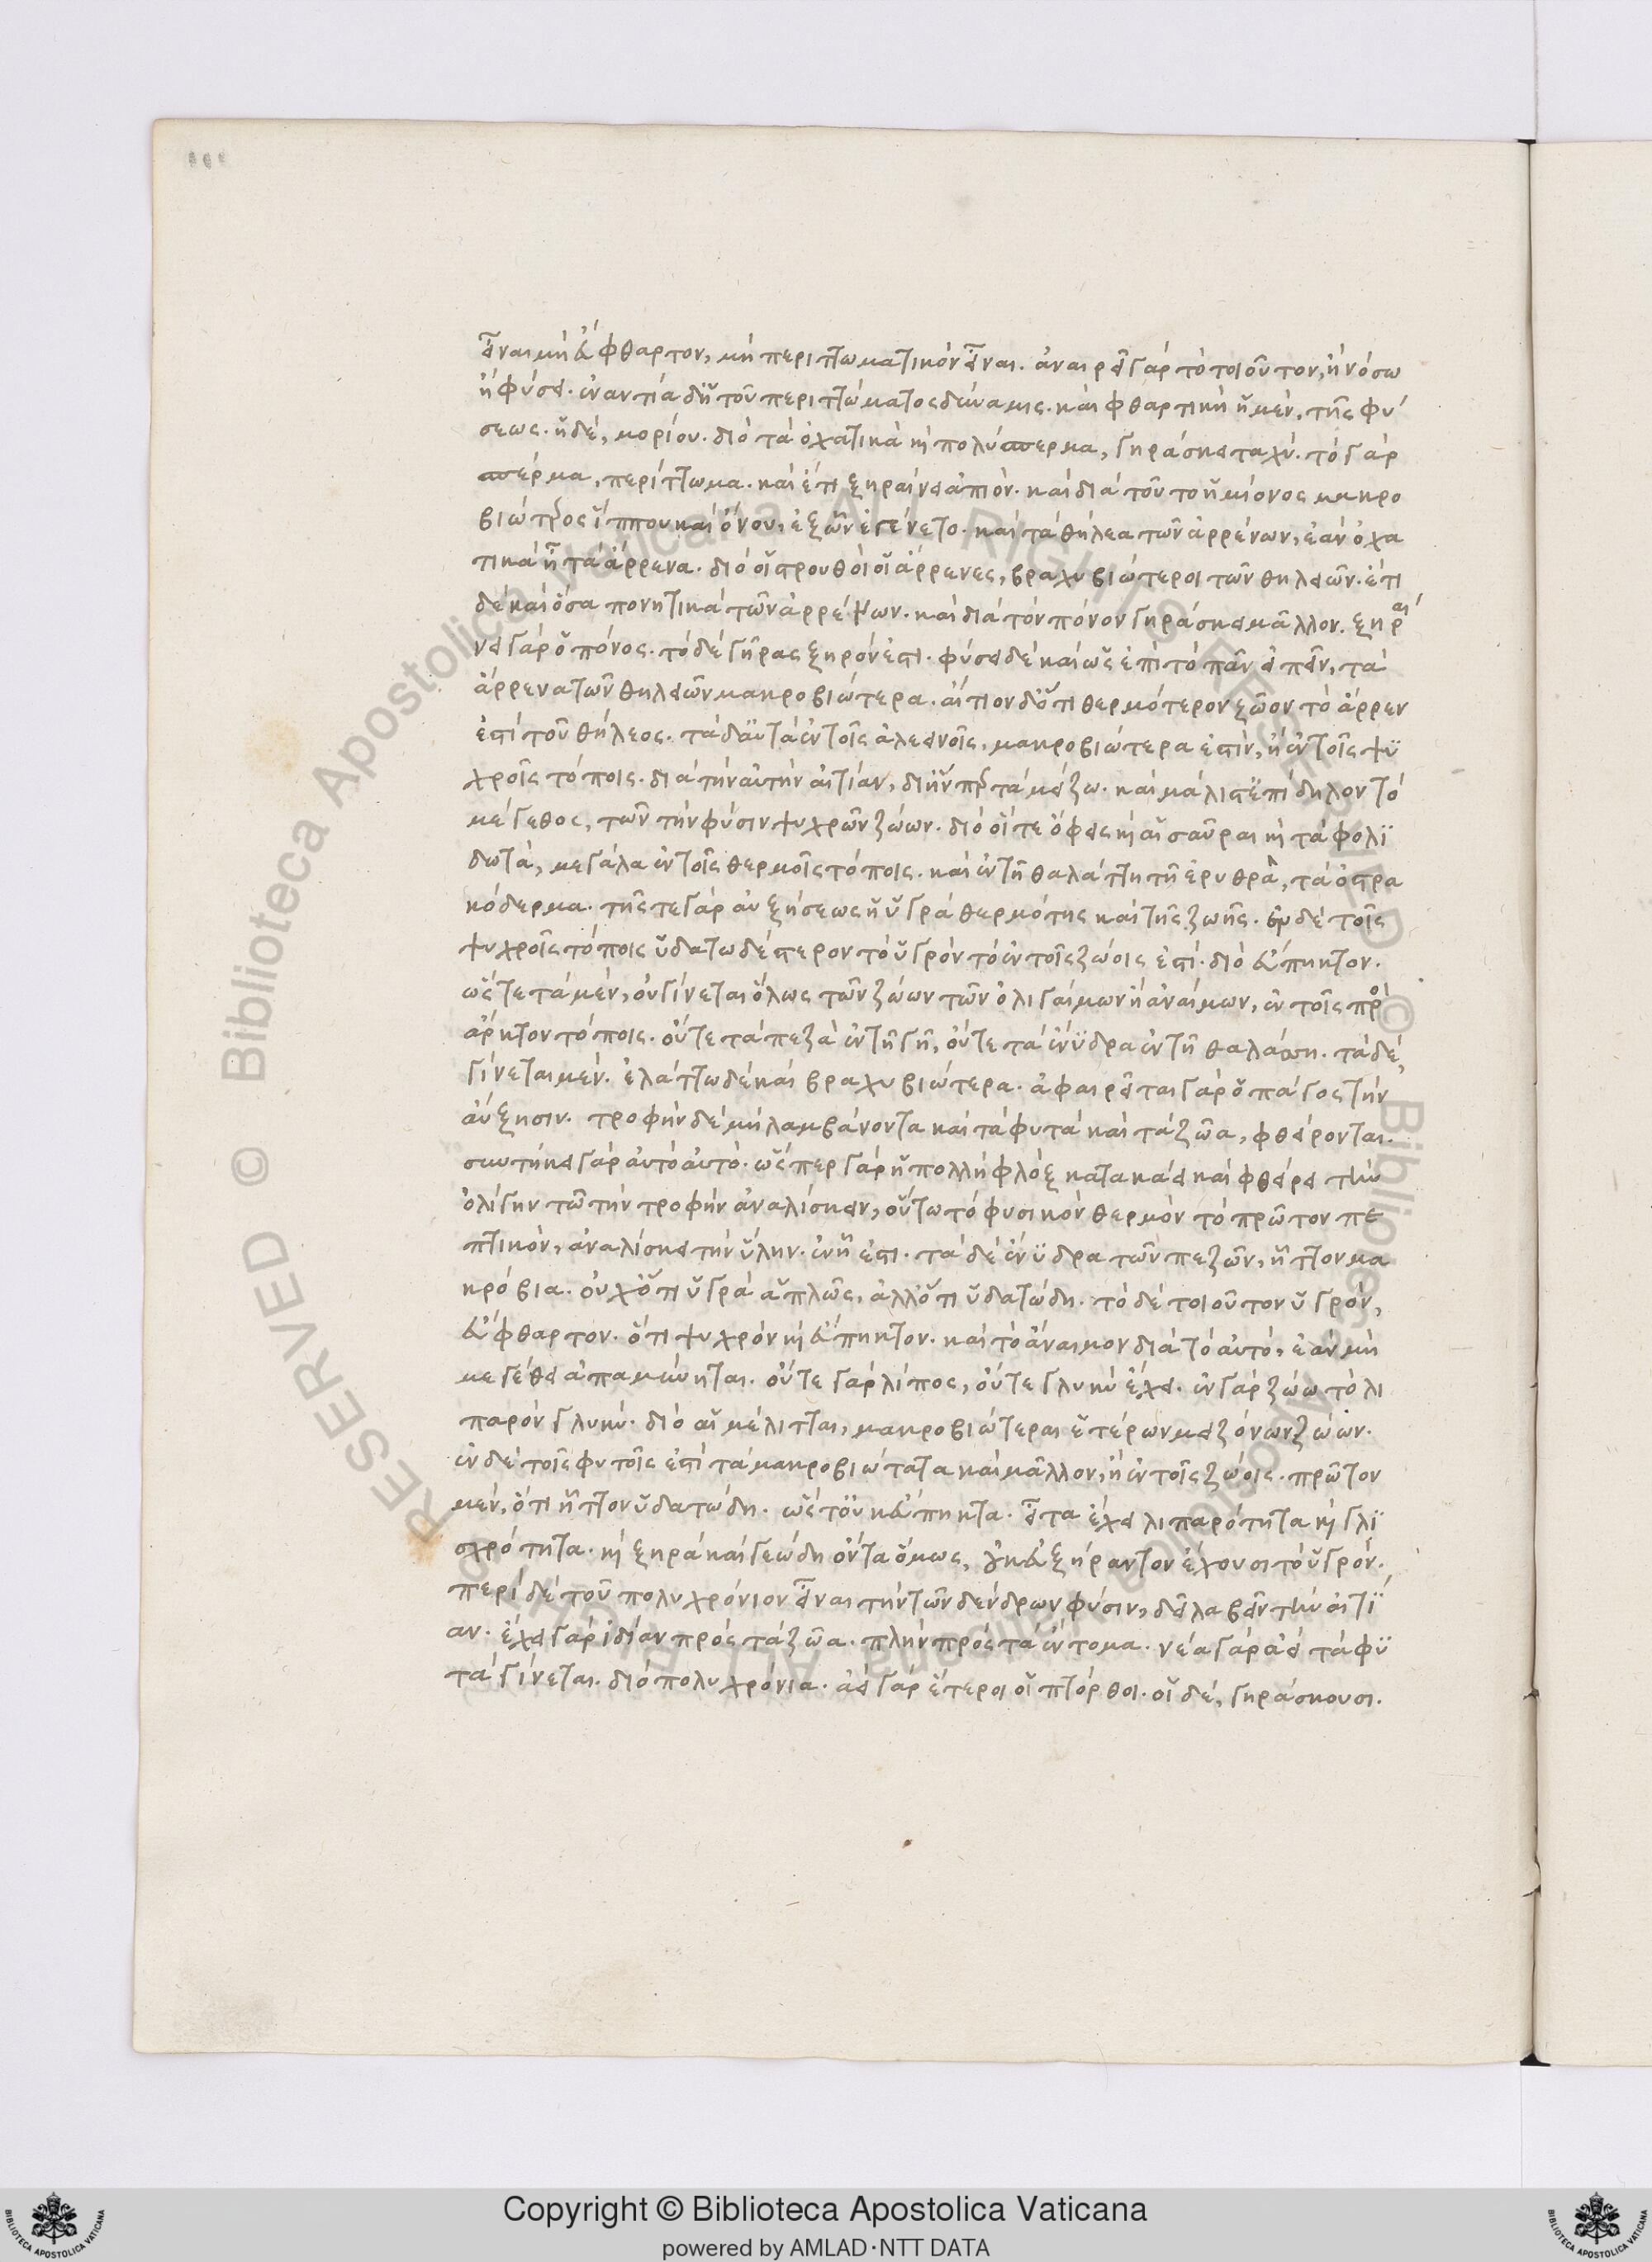 εἶναι μὴ εὔφθαρτον, μὴ περιττωματικὸν εἶναι. ἀναιρεῖ γὰρ τὸ τοιοῦτον, ἢ νόσω
ἢ φύσει. ἐναντία δ' ἡ τοῦ περιττώματος δύναμις. καὶ φθαρτικὴ ἡ μὲν, τῆς φύ
σεως. ἡ δὲ, μορίου. διὸ τὰ ὀχατικὰ καὶ πολύσπερμα, γηράσκει ταχύ. τὸ γὰρ
σπέρμα, περίττωμα. καὶ ἔτι ξηραίνει ἀπιόν. καὶ διὰ τοῦτο ἡμίονος μακρο
βιώτερος ἵππου καὶ ὄνου, ἐξ ὧν ἐγένετο. καὶ τὰ θήλεα τῶν ἀρρένων, ἐὰν ὀχα
τικὰ ᾖ τὰ ἄρρενα. διὸ οἱ στρουθοὶ οἱ ἄρρενες, βραχυβιώτεροι τῶν θηλειῶν. ἔτι
δὲ καὶ ὅσα πονητικὰ τῶν ἀρρένων. καὶ διὰ τὸν πόνον γηράσκει μᾶλλον. ξηραί
νει γὰρ ὁ πόνος. τὸ δὲ γῆρας ξηρόν ἐστι. φύσει δὲ καὶ ὡς ἐπὶ τὸ πᾶν εἰπεῖν, τὰ
ἄρρενα τῶν θηλειῶν μακροβιώτερα. αἴτιον δ' ὅτι θερμότερον ζῶον τὸ ἄρρεν
ἐστὶ τοῦ θήλεος. τὰ δ' αὐτὰ ἐν τοῖς ἀλεεινοῖς, μακροβιώτερα ἐστὶν, ἢ ἐν τοῖς ψυ
χροῖς τόποις. διὰ τὴν αὐτὴν αἰτίαν, δι' ἥνπερ τὰ μείζω. καὶ μάλιστ' ἐπίδηλον τὸ
μέγεθος, τῶν τὴν φύσιν ψυχρῶν ζώων. διὸ οἵ τε ὄφεις καὶ αἱ σαῦραι καὶ τὰ φολι
δωτὰ, μεγάλα ἐν τοῖς θερμοῖς τόποις. καὶ ἐν τῇ θαλάττη τῇ ἐρυθρᾶ, τὰ ὀστρα
κόδερμα. τῆς τε γὰρ αὐξήσεως ἡ ὑγρὰ θερμότης καὶ τῆς ζωῆς. ἐν δὲ τοῖς
ψυχροῖς τόποις ὑδατωδέστερον τὸ ὑγρὸν τὸ ἐν τοῖς ζώοις ἐστί. διὸ εὔπηκτον.
ὥστε τὰ μὲν, οὐ γίνεται ὅλως τῶν ζώων τῶν ὀλιγαίμων ἢ ἀναίμων, ἐν τοῖς πρὸ
ἄρκτον τόποις. οὔτε τὰ πεζὰ ἐν τῇ γῇ, οὔτε τὰ ἔνυδρα ἐν τῇ θαλάσση. τὰ δὲ,
γίνεται μέν. ἐλάττω δὲ καὶ βραχυβιώτερα. ἀφαιρεῖται γὰρ ὁ πάγος τὴν
αὔξησιν. τροφὴν δὲ μὴ λαμβάνοντα καὶ τὰ φυτὰ καὶ τὰ ζῶα, φθείρονται.
συντήκει γὰρ αὐτὸ αὑτό. ὥσπερ γὰρ ἡ πολλὴ φλὸξ κατακαίει καὶ φθείρει τὴν
ὀλίγην τῶ τὴν τροφὴν ἀναλίσκειν, οὕτω τὸ φυσικὸν θερμὸν τὸ πρῶτον πε
πτικὸν, ἀναλίσκει τὴν ὕλην. ἐν ᾗ ἐστι. τὰ δὲ ἔνυδρα τῶν πεζῶν, ἧττον μα
κρόβια. οὐχ ὅτι ὑγρὰ ἁπλῶς, ἀλλ' ὅτι ὑδατώδη. τὸ δὲ τοιοῦτον ὑγρὸν,
εὔφθαρτον. ὅτι ψυχρὸν καὶ εὔπηκτον. καὶ τὸ ἄναιμον διὰ τὸ αὐτὸ, ἐὰν μὴ
μεγέθει ἀπαμύνηται. οὔτε γὰρ λίπος, οὔτε γλυκὺ ἔχει. ἐν γὰρ ζώω τὸ λι
παρὸν γλυκύ. διὸ αἱ μέλιτται, μακροβιώτεραι ἑτέρων μειζόνων ζώων.
ἐν δὲ τοῖς φυτοῖς ἐστὶ τὰ μακροβιώτατα καὶ μᾶλλον, ἢ ἐν τοῖς ζώοις. πρῶτον
μὲν, ὅτι ἧττον ὑδατώδη. ὥστ' οὐκ εὔπηκτα. εἶτα ἔχει λιπαρότητα καὶ γλι
σχρότητα. καὶ ξηρὰ καὶ γεώδη ὄντα ὅμως, οὐκ εὐξήραντον ἔχουσι τὸ ὑγρόν.
περὶ δὲ τοῦ πολυχρόνιον εἶναι τὴν τῶν δένδρων φύσιν, δεῖ λαβεῖν τὴν αἰτί
αν. ἔχει γὰρ ἰδίαν πρὸς τὰ ζῶα. πλὴν πρὸς τὰ ἔντομα. νέα γὰρ ἀεὶ τὰ φυ
τὰ γίνεται. διὸ πολυχρόνια. ἀεὶ γὰρ ἕτεροι οἱ πτόρθοι. οἱ δὲ, γηράσκουσι.
© Biblioteca Apostolica Vaticana ALL RIGHTS RESERVED
Copyright © Biblioteca Apostolica Vaticana
powered by AMLAD·NTT DATA